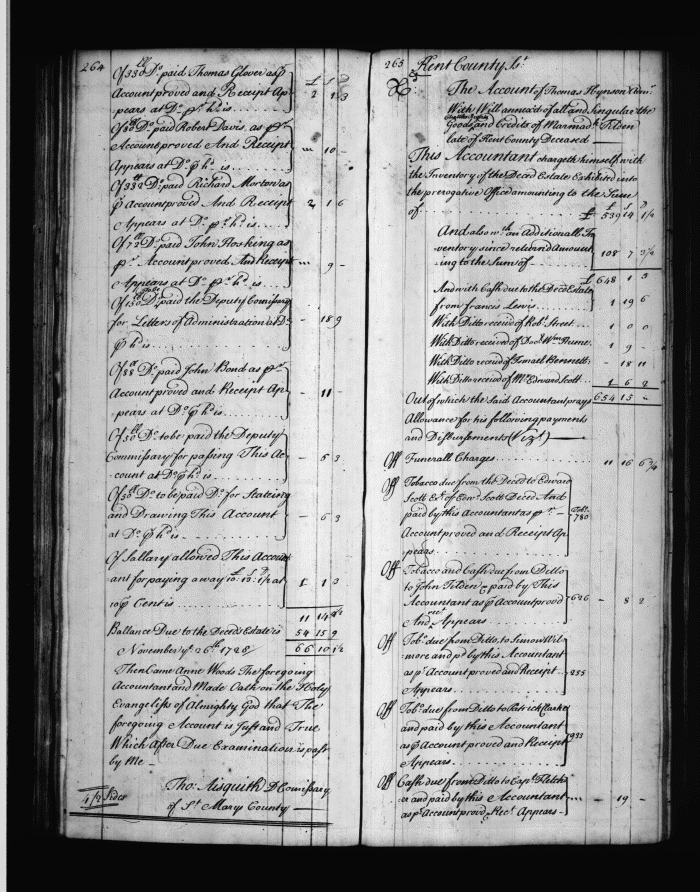 264
Of 330 lb Do. paid Thomas Glover as p
Account proved and Receipt Ap
pears at Do. pr. h: is
£ S D
2 1 3
Of Do. paid Robert Davis as pr
Account proved And Receipt
Appears at Do. p h: is
" 10 -
Of 330 Do. paid Richard Morton as
p Account proved And Receipt
Appears at Do. pr. h: is
2 1 6
Of 72 Do. paid John Hosking as
pr. Account proved And Receipt
Appears at Do. pr. h: is
9 -
Of 150 Do. paid the Deputy Comissry
for Letters of Administration at Do
p h: is
- 18 9
Of 88 Do. paid John Bond as pr
Account proved and Receipt Ap-
pears at Do. p h: is
- 11
Of 50 Do. to be paid the Deputy
Commissary for passing This Ac-
count at Do. p h: is
- 5 3
Of 50 Do. to be paid Do. for Stateing
and Drawing This Account
at Do. p h: is
- 6 3
Of Sallary allowed This Account
ant for paying away at
10 p Cent is
£ 1 - 3
11 14
Ballance Due to the Deceds Estate is
54 15 9
November ye. 26th 1728
66 10 1/2
Then Came Anne Woods The foregoing
Accountant and Made Oath on the Holy
Evangelists of Almighty God that The
foregoing Account is Just and True
Which After Due Examination is past
by Me
Tho: Aisquith D Comissary
of St. Marys County
4/2 Sides
265
Kent County Ss.
The Account of Thomas Hynson Admr.
With Will annexed of all and Singular the
Goods and Credits of Marmadk. Tilden
late of Kent County Deceased
This Accountant chargeth himself with
the Inventory of the Deced Estate Exhibited into
the prerogative Office amounting to the Sume
of
£ S D
£ 539 14 1/2
And also wth. an Additionall In
ventory since returnd Amount
ing to the Sum of
108 7
£ 648 1 5
And with Cash due to the Deced Estate
from Francis Lewis
1 19 6
With Ditto received of Robt. Street
1 0 0
With Ditto received of Wm.
1 9 -
With Ditto received of Ismaell Bennett
- 18 11
With Ditto received of Mr. Edward Scott
1 6 2
Out of which the Said Accountant prays
654 15 -
Allowance for his following payments
and Disbursments (Vizt.)
Off Funerall Charges
11 16 6 3/4
Off Tobacco due from the Deced to Edward
Scott Exr. of Edwd. Scott Deced And
paid by this Accountant as pr.
Account proved and Receipt Ap
pears
Tobo. 780
Off Tobacco and Cash due from Ditto
to John Tilden & paid by This
Accountant as p Account proved
And rect Appears
7626 - 8 2
Off Tobo. due from Ditto to Simon Wil
more and pd by this Accountant
as pr. Account proved and Receipt
Appears
255
Off Tobo. due from Ditto to Patrick Clarke
and paid by this Accountant
as p Account proved and Receipt
Appears
Off Cash due from Ditto to Capt. Fletch
er and paid by this Accountant
as pr. Account provd Rect. Appears
- 19 -